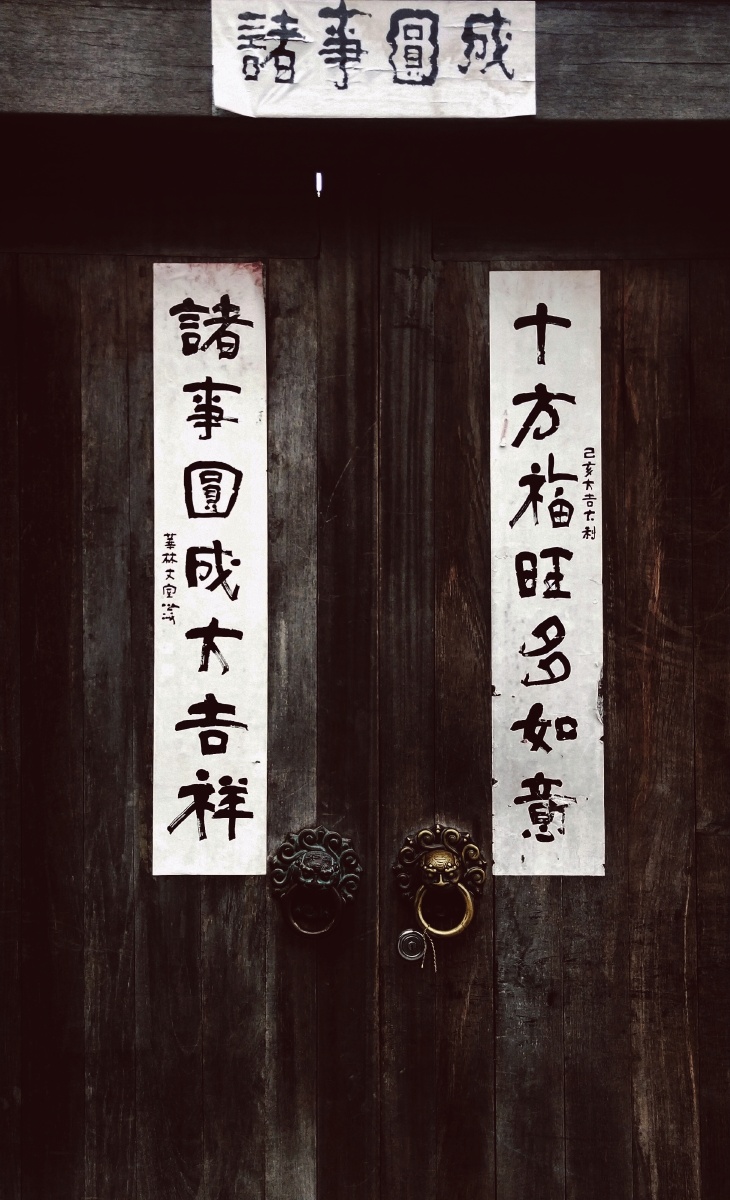 諸事圓成
十方福旺多如意
己亥大吉大利
諸事圓成大吉祥
華林文室